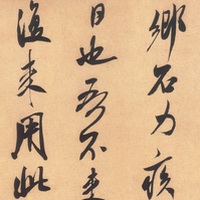 鄉石力疾
日也吾不來
復来用此